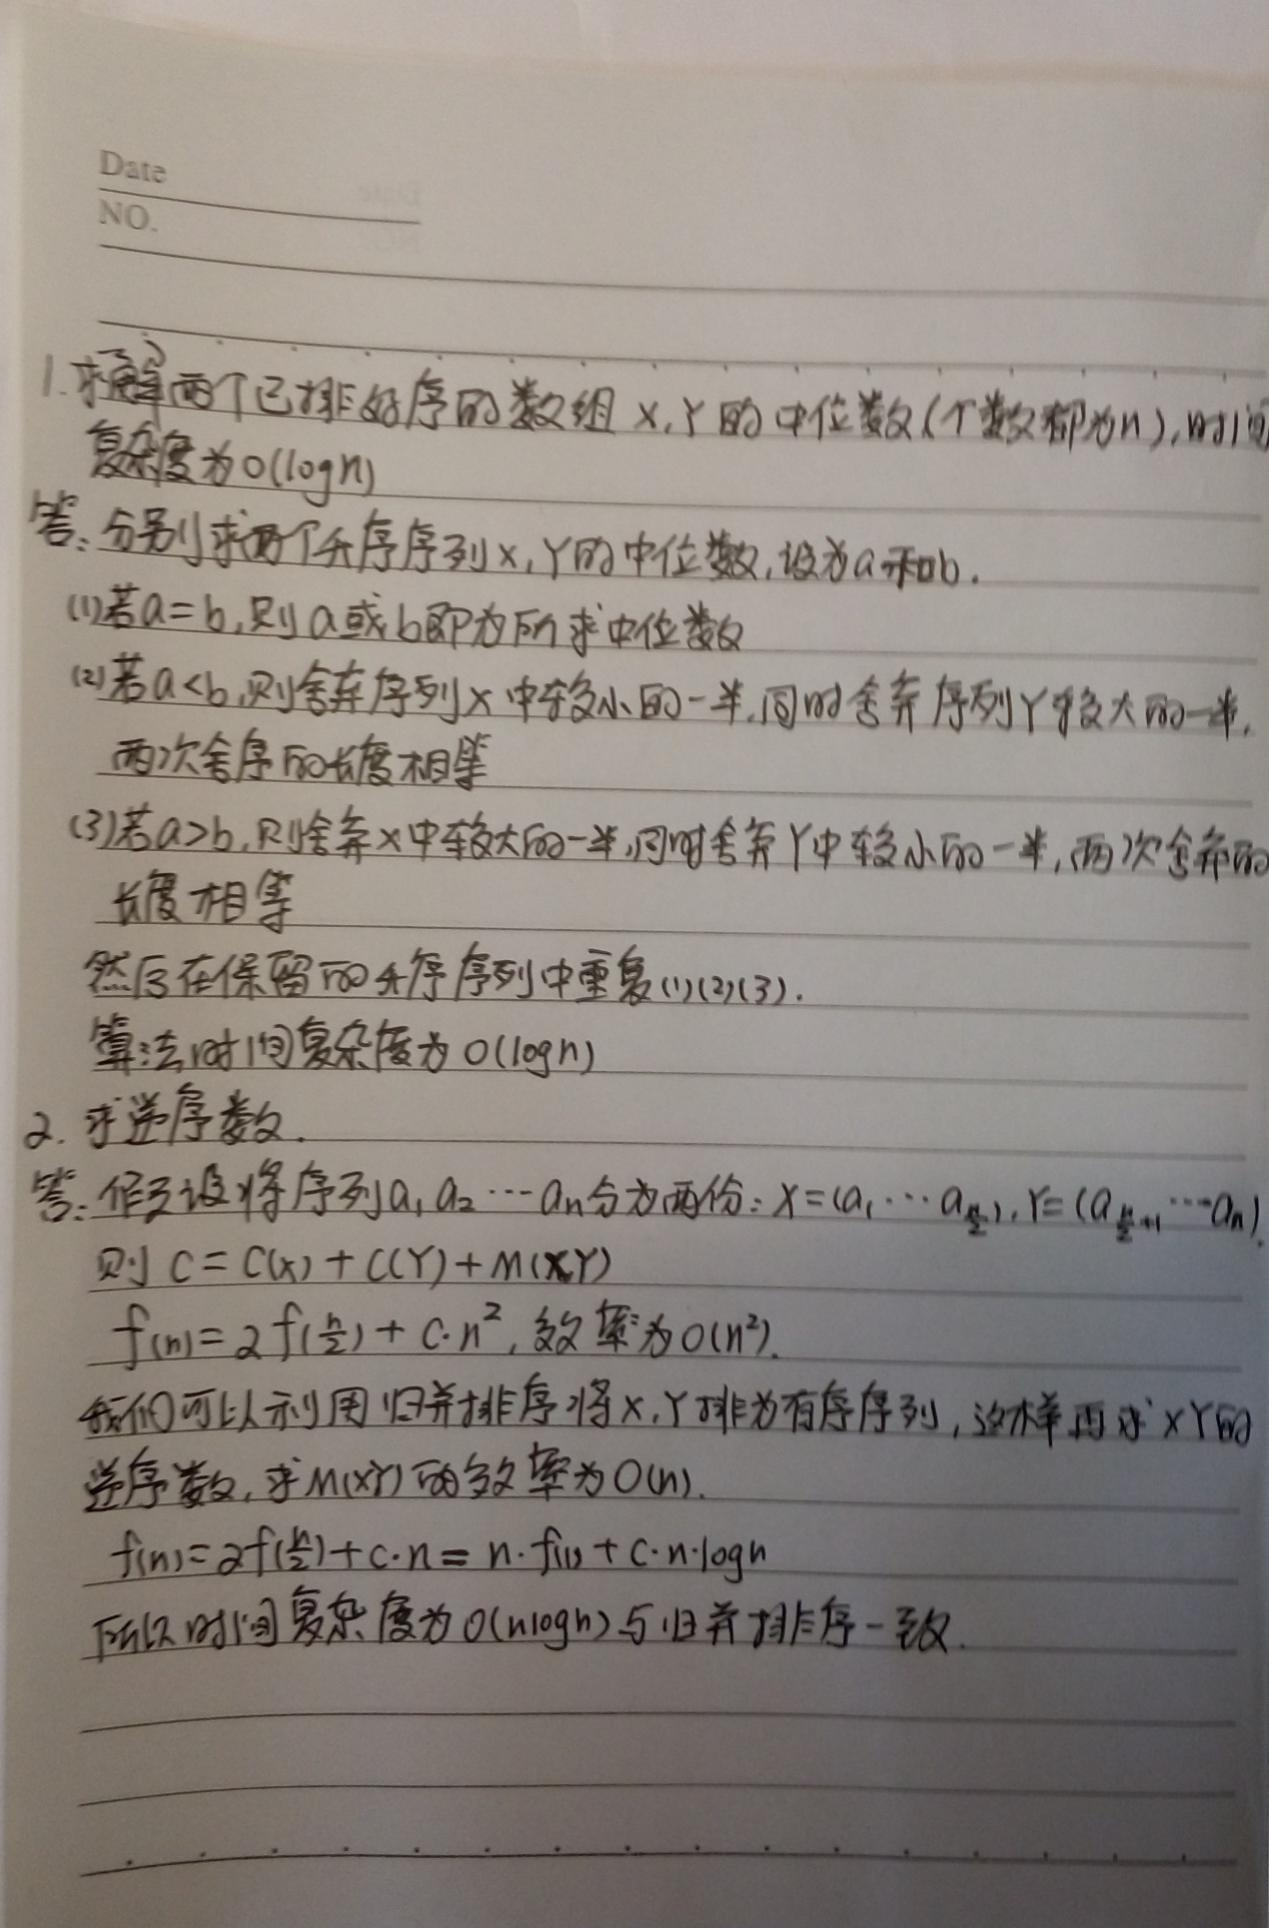 Date
NO.
1.求解两个已排好序的数组X,Y的中位数(个数都为n),时间
复杂度为O(logn)
答:分别求两个升序序列X,Y的中位数,设为a和b.
(1)若a=b,则a或b即为所求中位数
(2)若a<b,则舍弃序列X中较小的一半,同时舍弃序列Y较大的一半,
两次舍序的长度相等
(3)若a>b,则舍弃X中较大的一半,同时舍弃Y中较小的一半,两次舍弃的
长度相等
然后在保留的升序序列中重复(1)(2)(3).
算法时间复杂度为O(logn)
2.求逆序数.
答:假设将序列a₁a₂…aₙ分为两份:X=(a₁…a_{n/2}),Y=(a_{n/2+1}…aₙ).
则C=C(X)+C(Y)+M(XY)
f(n)=2f(n/2)+C·n²,效率为O(n²).
我们可以利用归并排序将X,Y排为有序序列,这样再求XY的
逆序数,求M(XY)的效率为O(n).
f(n)=2f(n/2)+C·n=n·f(1)+C·n·logn
所以时间复杂度为O(nlogn)与归并排序一致.